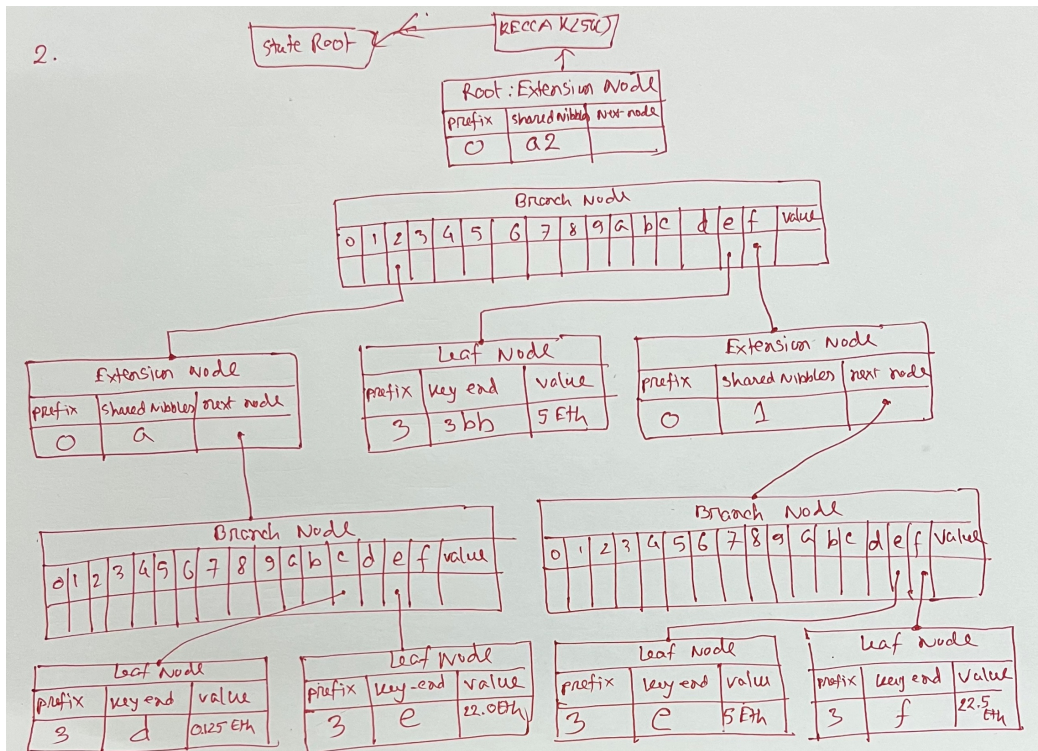 2.
State Root
KECCAK256()
Root : Extension Node
prefix shared Nibbles Next node
0 a2
Branch Node
0 1 2 3 4 5 6 7 8 9 a b c d e f value
Extension Node
prefix shared Nibbles next node
0 a
Leaf Node
prefix key end value
3 3bb 5 Eth
Extension Node
prefix shared Nibbles next node
0 1
Branch Node
0 1 2 3 4 5 6 7 8 9 a b c d e f value
Branch Node
0 1 2 3 4 5 6 7 8 9 a b c d e f value
Leaf Node
prefix key end value
3 d 0.125 Eth
Leaf Node
prefix key-end value
3 e 22.0 Eth
Leaf Node
prefix key end value
3 e 5 Eth
Leaf Node
prefix key end value
3 f 22.5 Eth